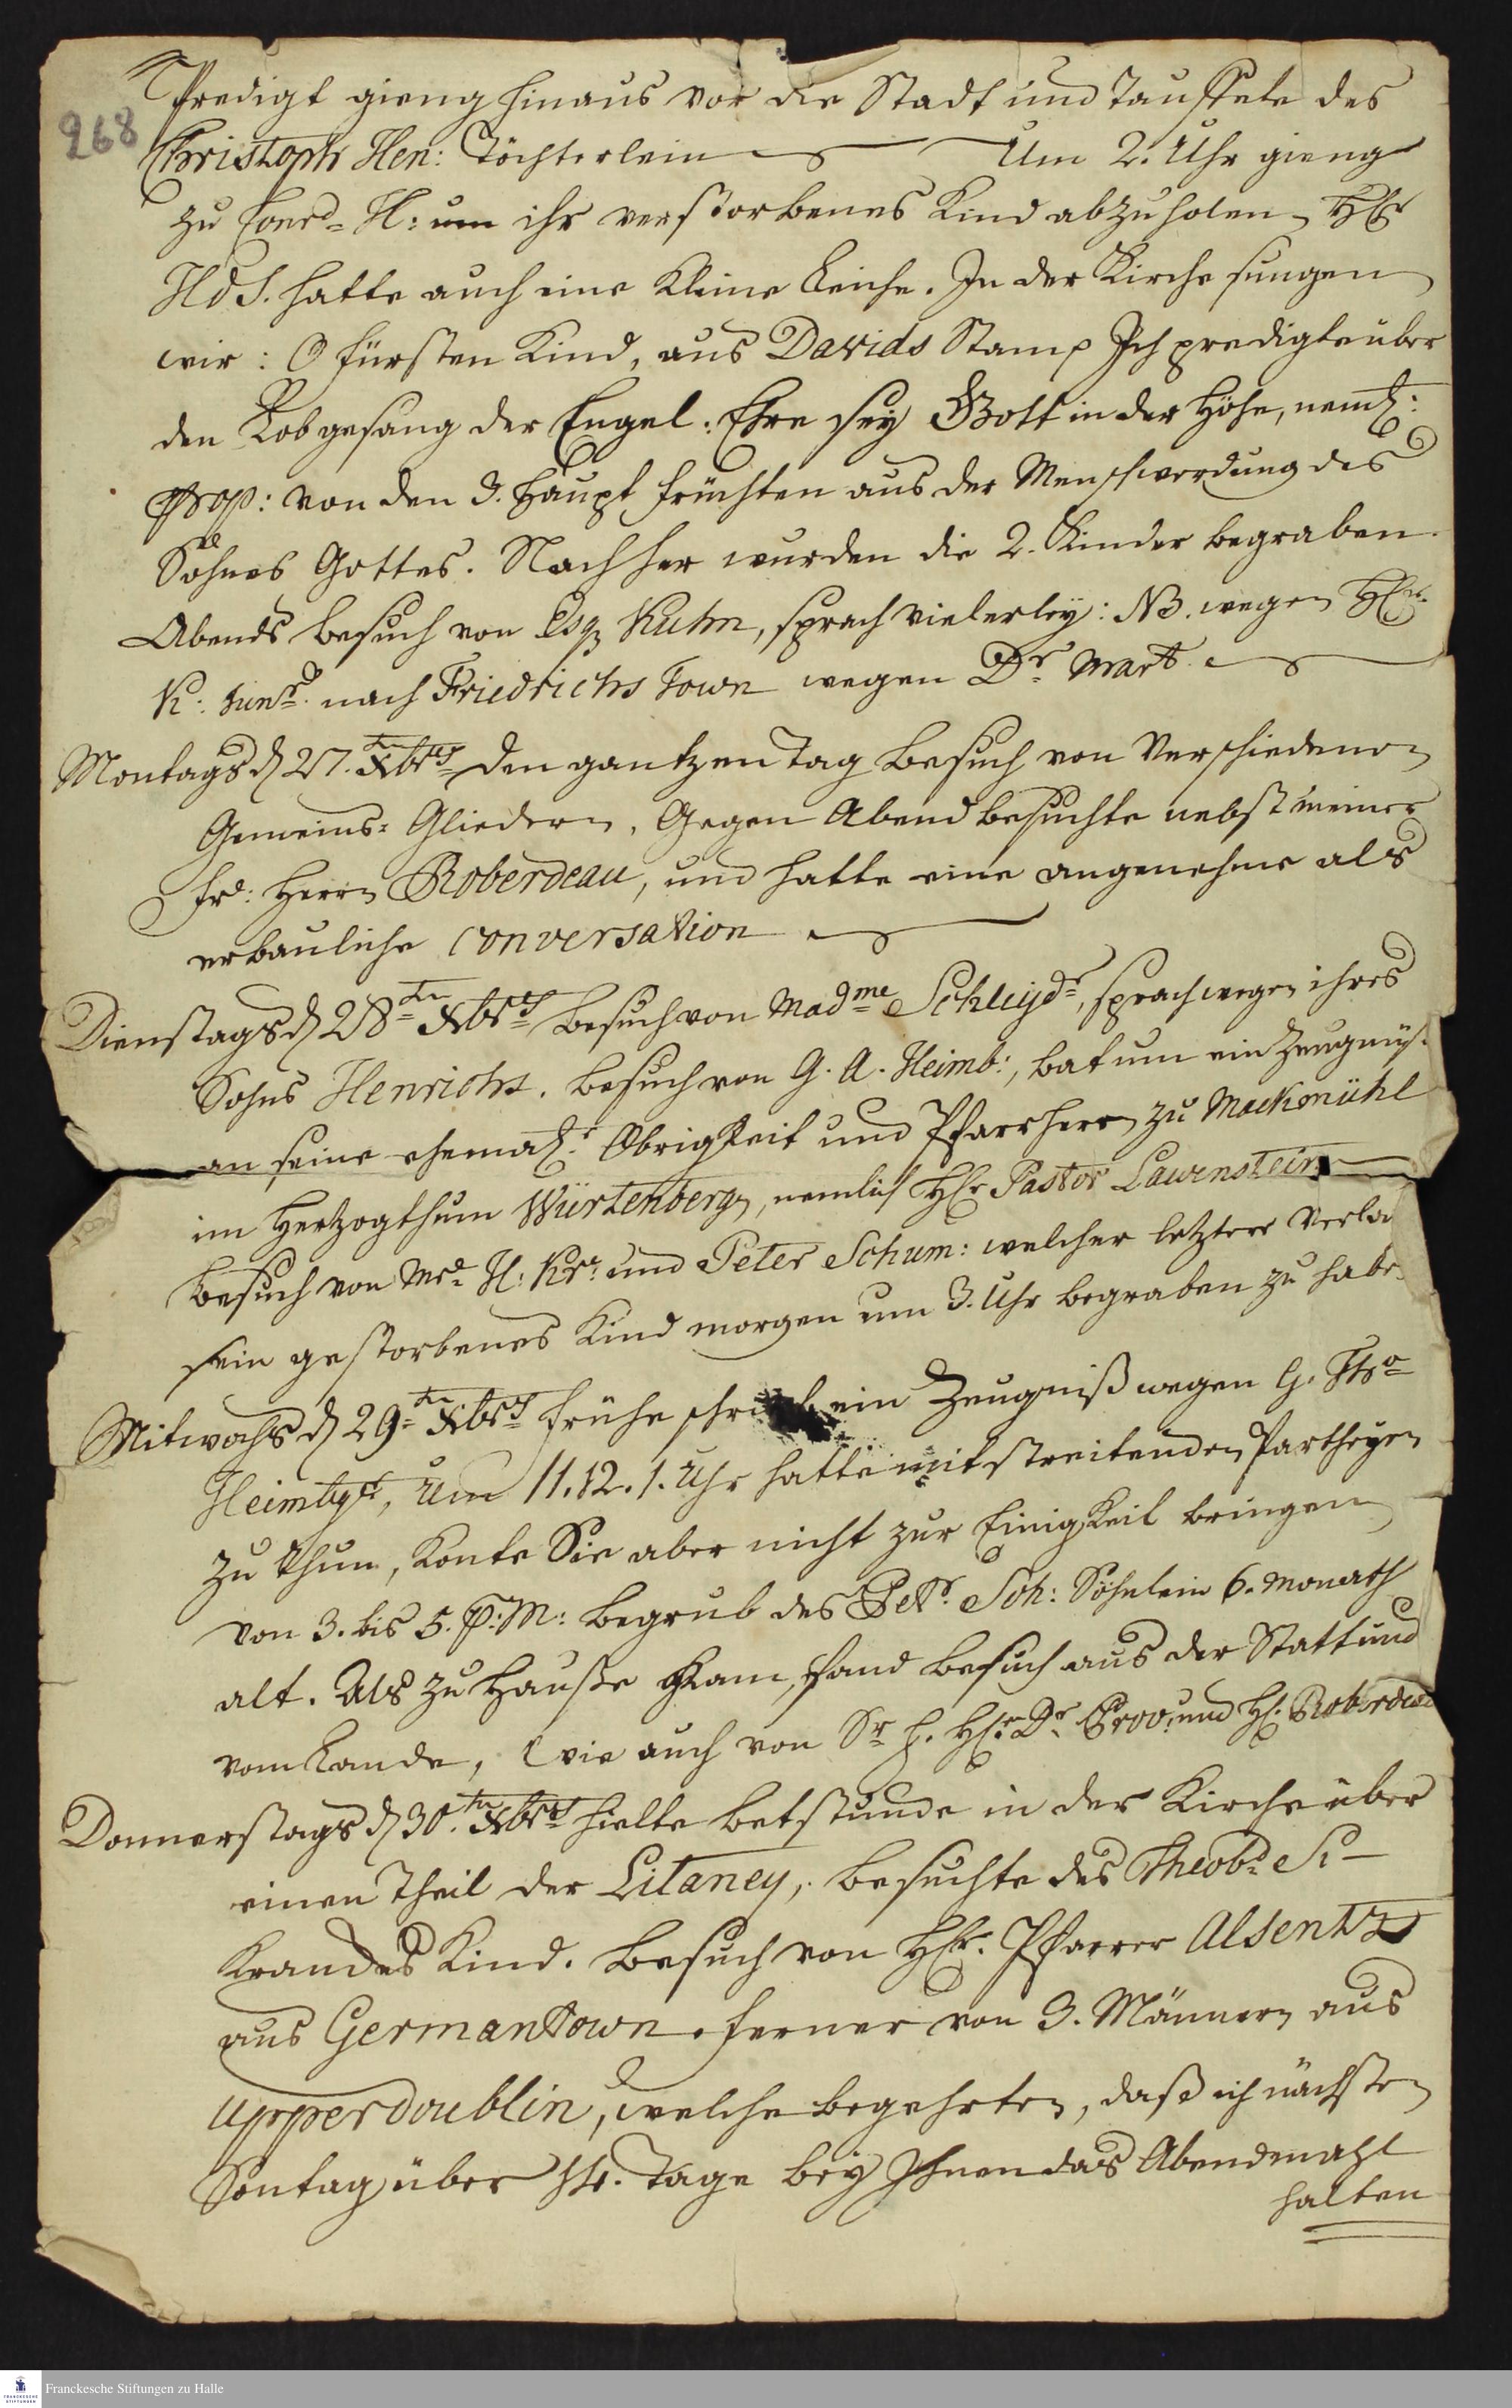 268
Predigt gieng hinaus vor die Stadt und tauffete des
Christoph Hen: Töchterlein Um 2. Uhr gieng
zu Conrd= H: um ihr verstorbenes Kind abzuholen, HErr
HdS. hatte auch eine kleine Leiche. In der Kirche sungen
wir: O Fürsten Kind, aus Davids Stam, Ich predigte über
den Lobgesang der Engel: Ehre sey Gott in der Höhe, neml:
prop: von den 3. Haupt früchten aus der Menschwerdung des
Sohnes Gottes. Nachher wurden die 2. Kinder begraben.
Abends besuch von Esqr Kuhn, sprach vielerley: NB. wegen HErn
K: Junr. nach Friedrichs Town wegen Dr Mart
Montags d 27. ten Xbris den gantzen Tag besuch von verschiedenen
Gemeins= Gliedern. Gegen Abend besuchte nebst meiner
Fr: Herrn Roberdeau, und hatte eine angenehme als
erbauliche conversation
Dienstags d 28ten Xbris besuch von Madme Schleyd., sprach wegen ihres
Sohns Henrichs. besuch von G. A. Heimb:, bat um ein Zeugniß
an seine ehemal. Obrigkeit und Pfarrherrn zu Mackmühl
im Hertzogthum Würtenberg, nemlich HEr Pastor Lauenstein
besuch von Mrs H: Kr: und Peter Schum: welcher letztere verla
sein gestorbenes Kind morgen um 3. Uhr begraben zu habe
Mitwochs d 29ten Xbris frühe schrieb ein Zeugniß wegen G. Tho
Heimb, Um 11. 12. 1. Uhr hatte mit streitenden Partheyen
zu thun, konte Sie aber nicht zur Einigkeit bringen
von 3. bis 5. P: M: begrub des Petr. Sch: Söhnlein 6. Monath
alt. Als zu Hauße kam, fand besuch aus der Statt und
vom Lande, wie auch von Sr H. HEr Dr. Prov: und HE. Roberdea
Donnerstags d 30. ten Xbris hielte betstunde in der Kirche über
einen Theil der Litaney, besuchte des Theobd Si-
krandes Kind. besuch von HEr. Pfarrer Alsentz
aus Germantown. ferner von 3. Männern aus
upperdoublin, welche begehrten, daß ich nächsten
Sontag über 14. Tage bey Ihnen das Abendmahl
halten
Franckesche Stiftungen zu Halle